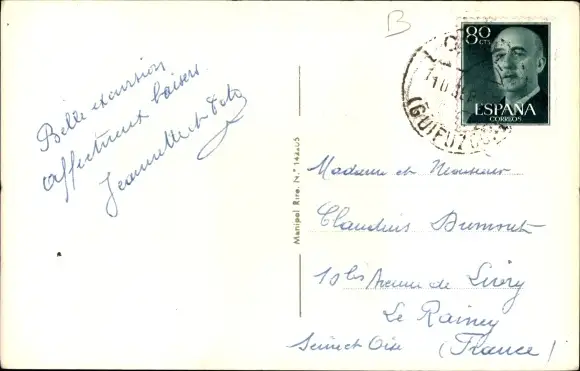 B
80
CTS
ESPAÑA
CORREOS
(GUIPUZCOA)
Belle excursion
affectueux baisers.
Jeannette et Toto
Manipel Rire. N.° 142205
Madame et Monsieur
Claudius Dumont
10 bis Avenue de Livry
Le Raincy
Seine et Oise (France)